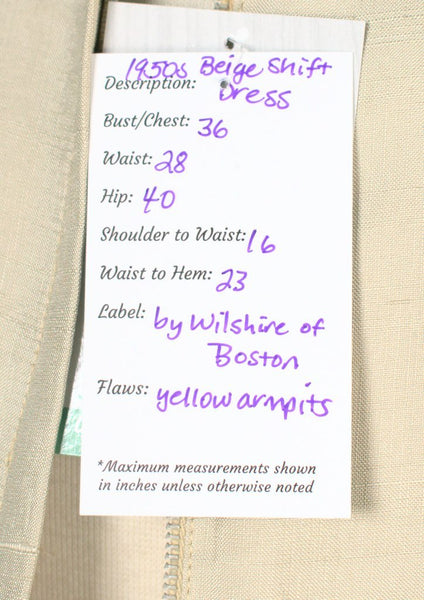 1950s Beige Shift
Description: Dress
Bust/Chest: 36
Waist: 28
Hip: 40
Shoulder to Waist: 16
Waist to Hem: 23
Label: by Wilshire of
Boston
Flaws: yellow armpits
*Maximum measurements shown
in inches unless otherwise noted